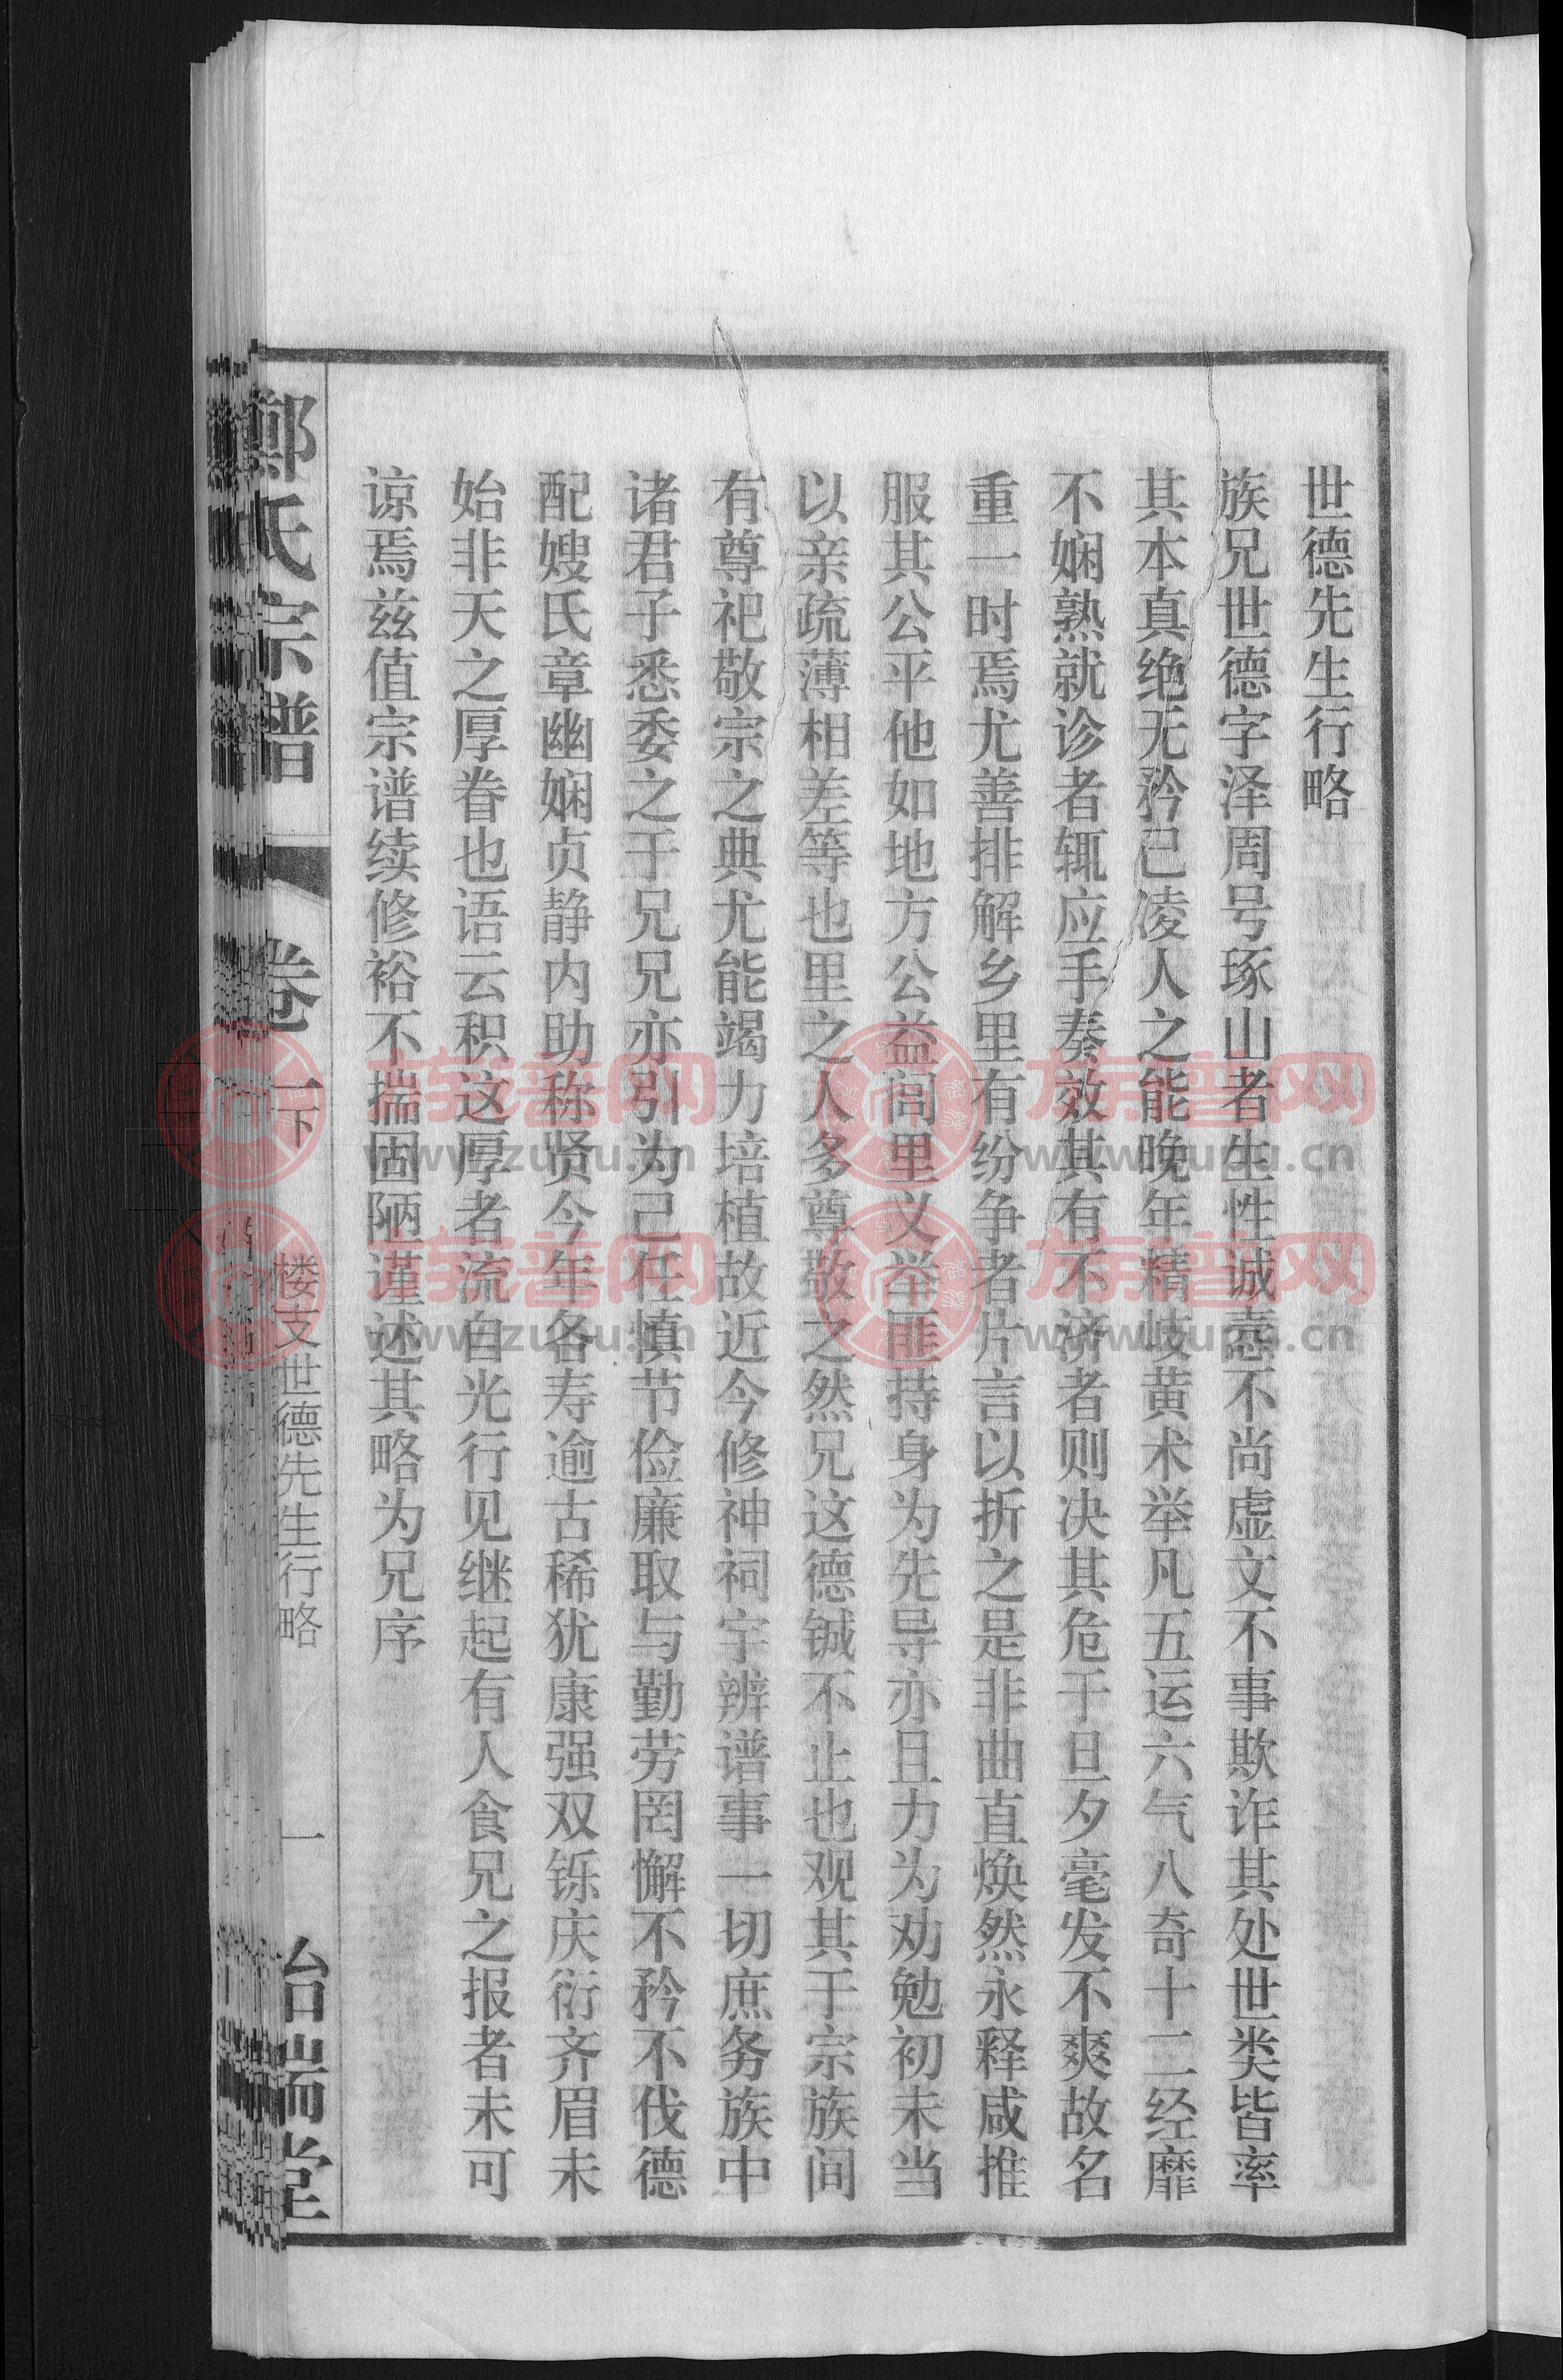 世德先生行略
族兄世德字泽周号琢山者生性诚悫不尚虚文不事欺诈其处世类皆率
其本真绝无矜己凌人之能晚年精岐黄术举凡五运六气八奇十二经靡
不娴熟就诊者辄应手奏效其有不济者则决其危于旦夕毫发不爽故名
重一时焉尤善排解乡里有纷争者片言以折之是非曲直焕然永释咸推
服其公平他如地方公益闾里义举匪持身为先导亦且力为劝勉初未当
以亲疏薄相差等也里之人多尊敬之然兄这德铖不止也观其于宗族间
有尊祀敬宗之典尤能竭力培植故近今修神祠宇辨谱事一切庶务族中
诸君子悉委之于兄兄亦引为己任慎节俭廉取与勤劳罔懈不矜不伐德
配嫂氏章幽娴贞静内助称贤今年各寿逾古稀犹康强双铄庆衍齐眉未
始非天之厚眷也语云积这厚者流自光行见继起有人食兄之报者未可
谅焉兹值宗谱续修裕不揣固陋谨述其略为兄序
郑氏宗谱
卷
一下
楼支世德先生行略
一
台瑞堂
族谱网
www.zupu.cn
族谱网
www.zupu.cn
族谱网
www.zupu.cn
族谱网
www.zupu.cn